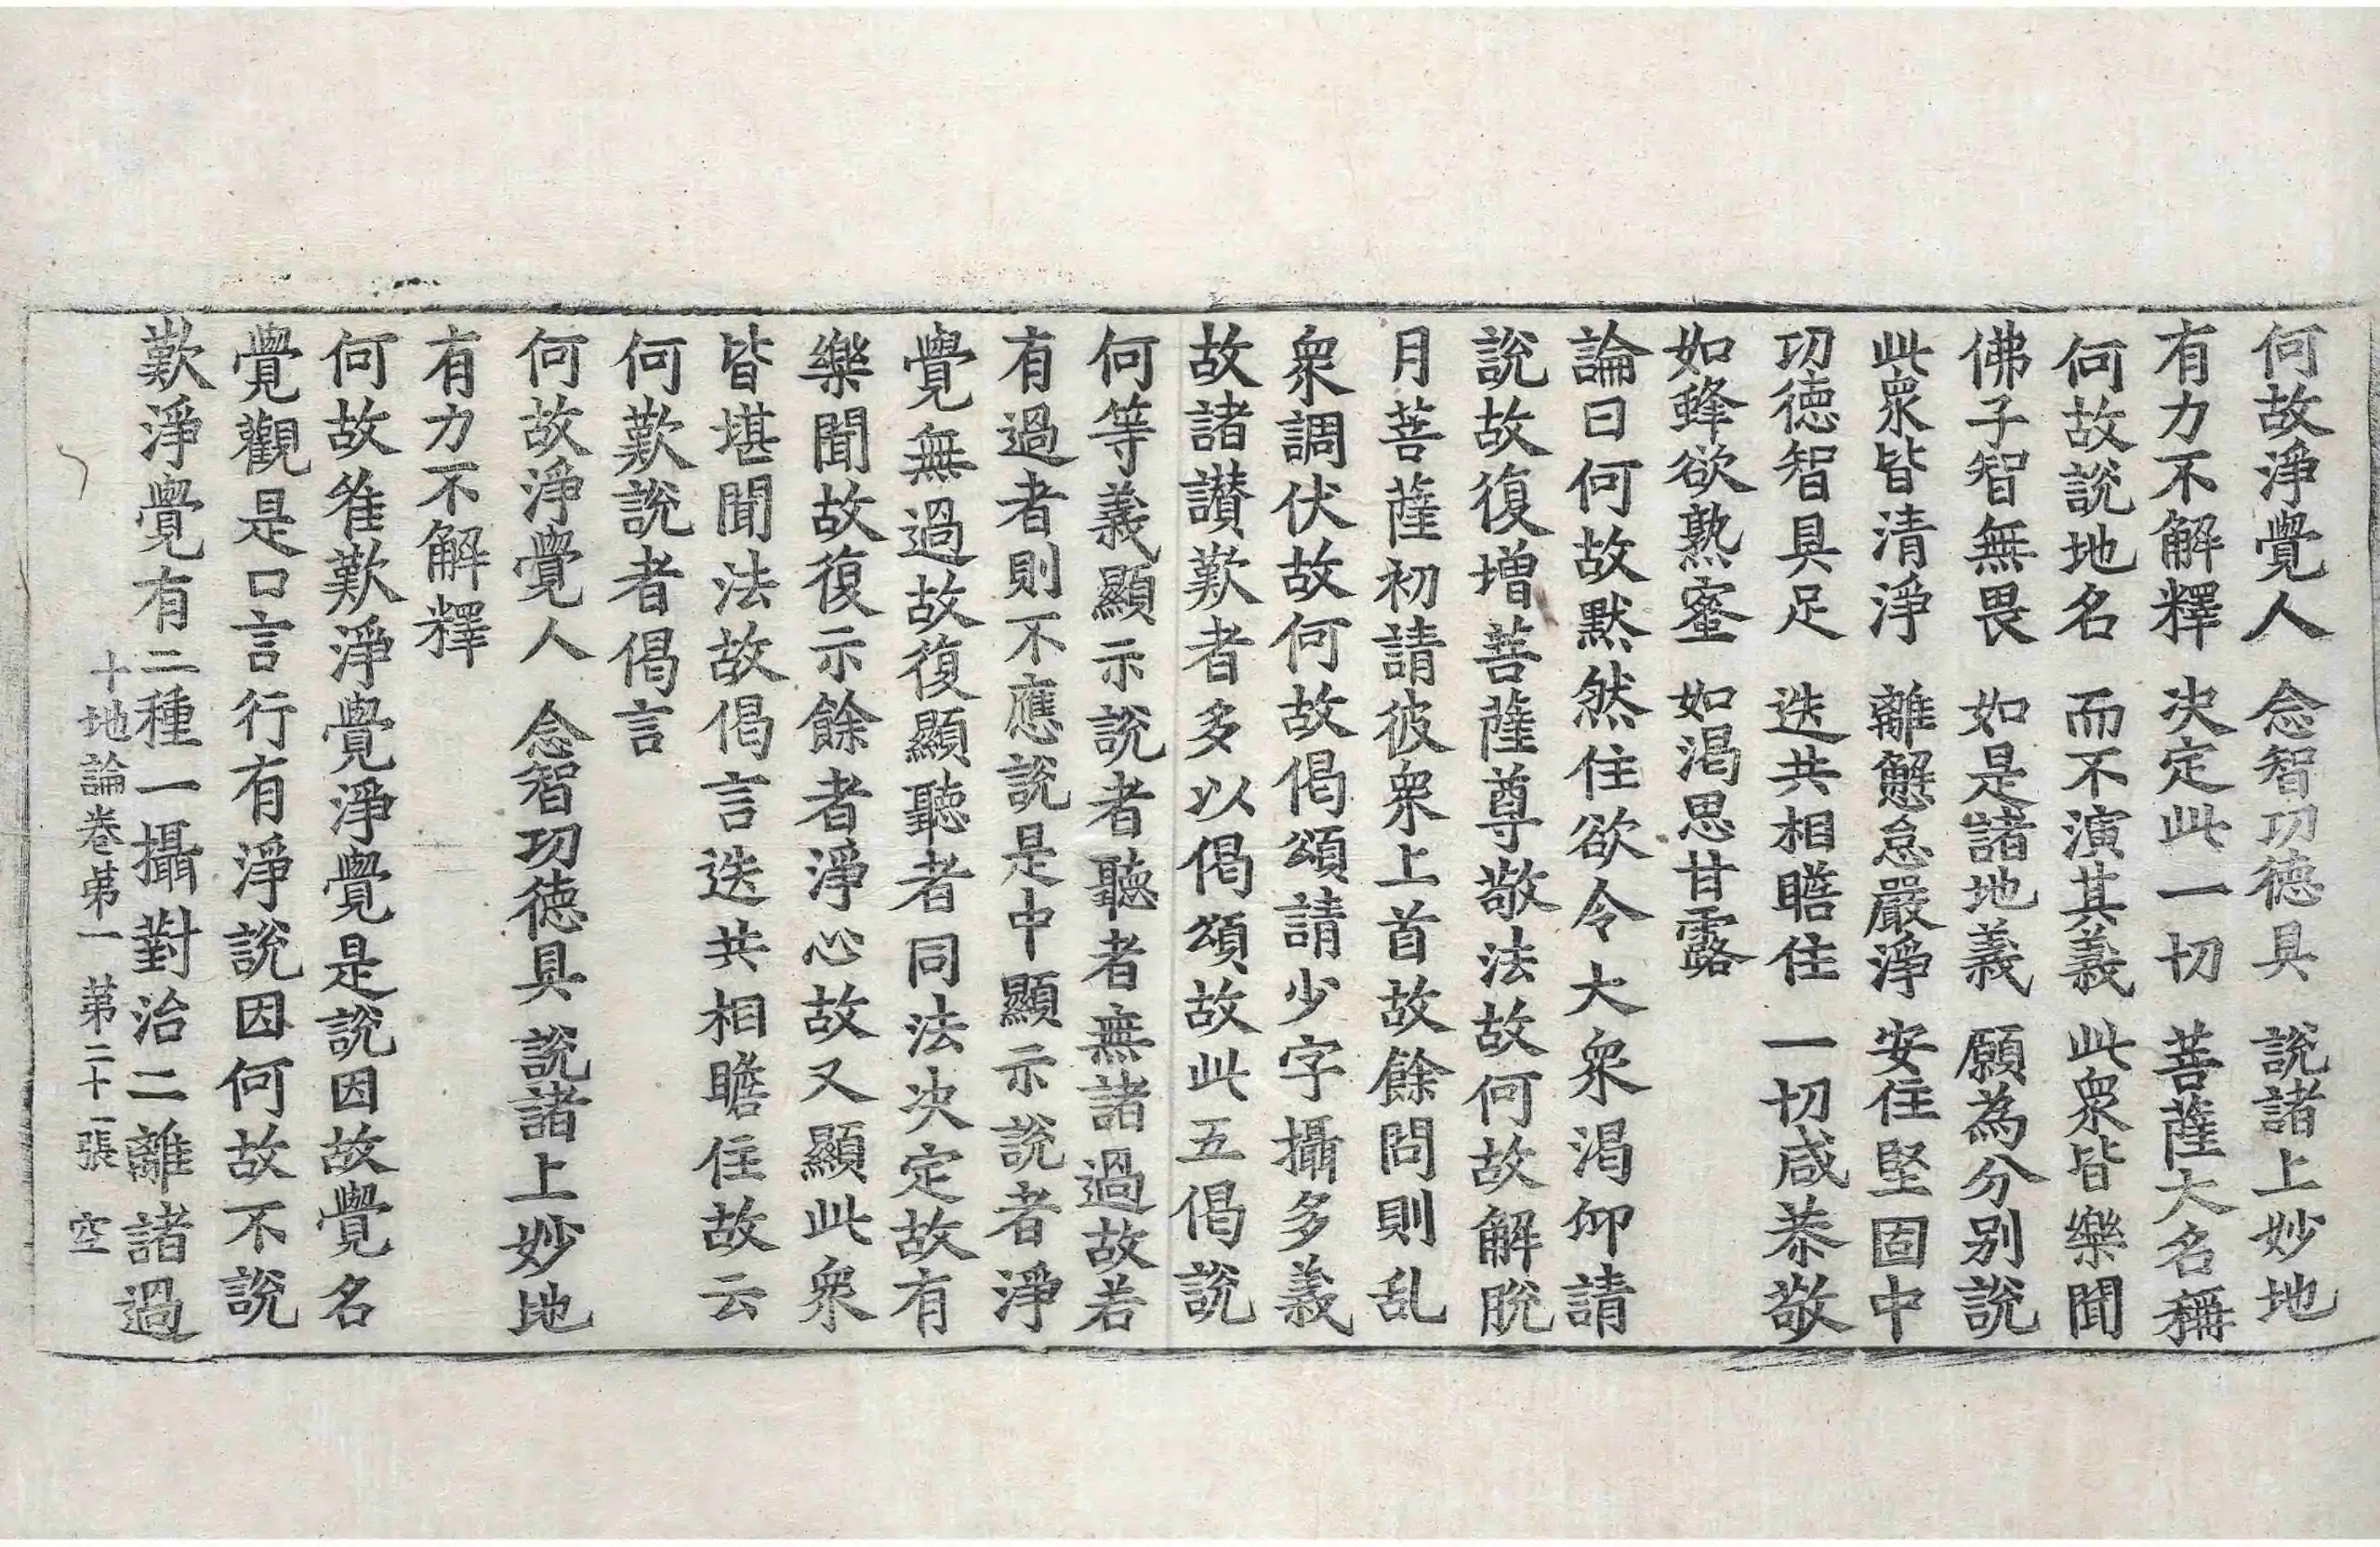 何故淨覺人　念智功德具　說諸上妙地
有力不解釋　决定此一切　菩薩大名稱
何故說地名　而不演其義　此衆皆樂聞
佛子智無畏　如是諸地義　願為分别說
此衆皆清淨　離懈怠嚴淨　安住堅固中
功德智具足　迭共相瞻住　一切咸恭敬
如蜂欲熟蜜　如渴思甘露
論曰何故黙然住欲令大衆渴仰請
說故復增菩薩尊敬法故何故解脫
月菩薩初請彼衆上首故餘問則乱
衆調伏故何故偈頌請少字攝多義
故諸讃歎者多以偈頌故此五偈說
何等義顯示說者聽者無諸過故若
有過者則不應說是中顯示說者淨
覺無過故復顯聽者同法决定故有
樂聞故復示餘者淨心故又顯此衆
皆堪聞法故偈言迭共相瞻住故云
何歎說者偈言
何故淨覺人　念智功德具　說諸上妙地
有力不解釋
何故隹歎淨覺淨覺是說因故覺名
覺觀是口言行有淨說因何故不說
歎淨覺有二種一攝對治二離諸過
十地論卷第一　第二十一張　空